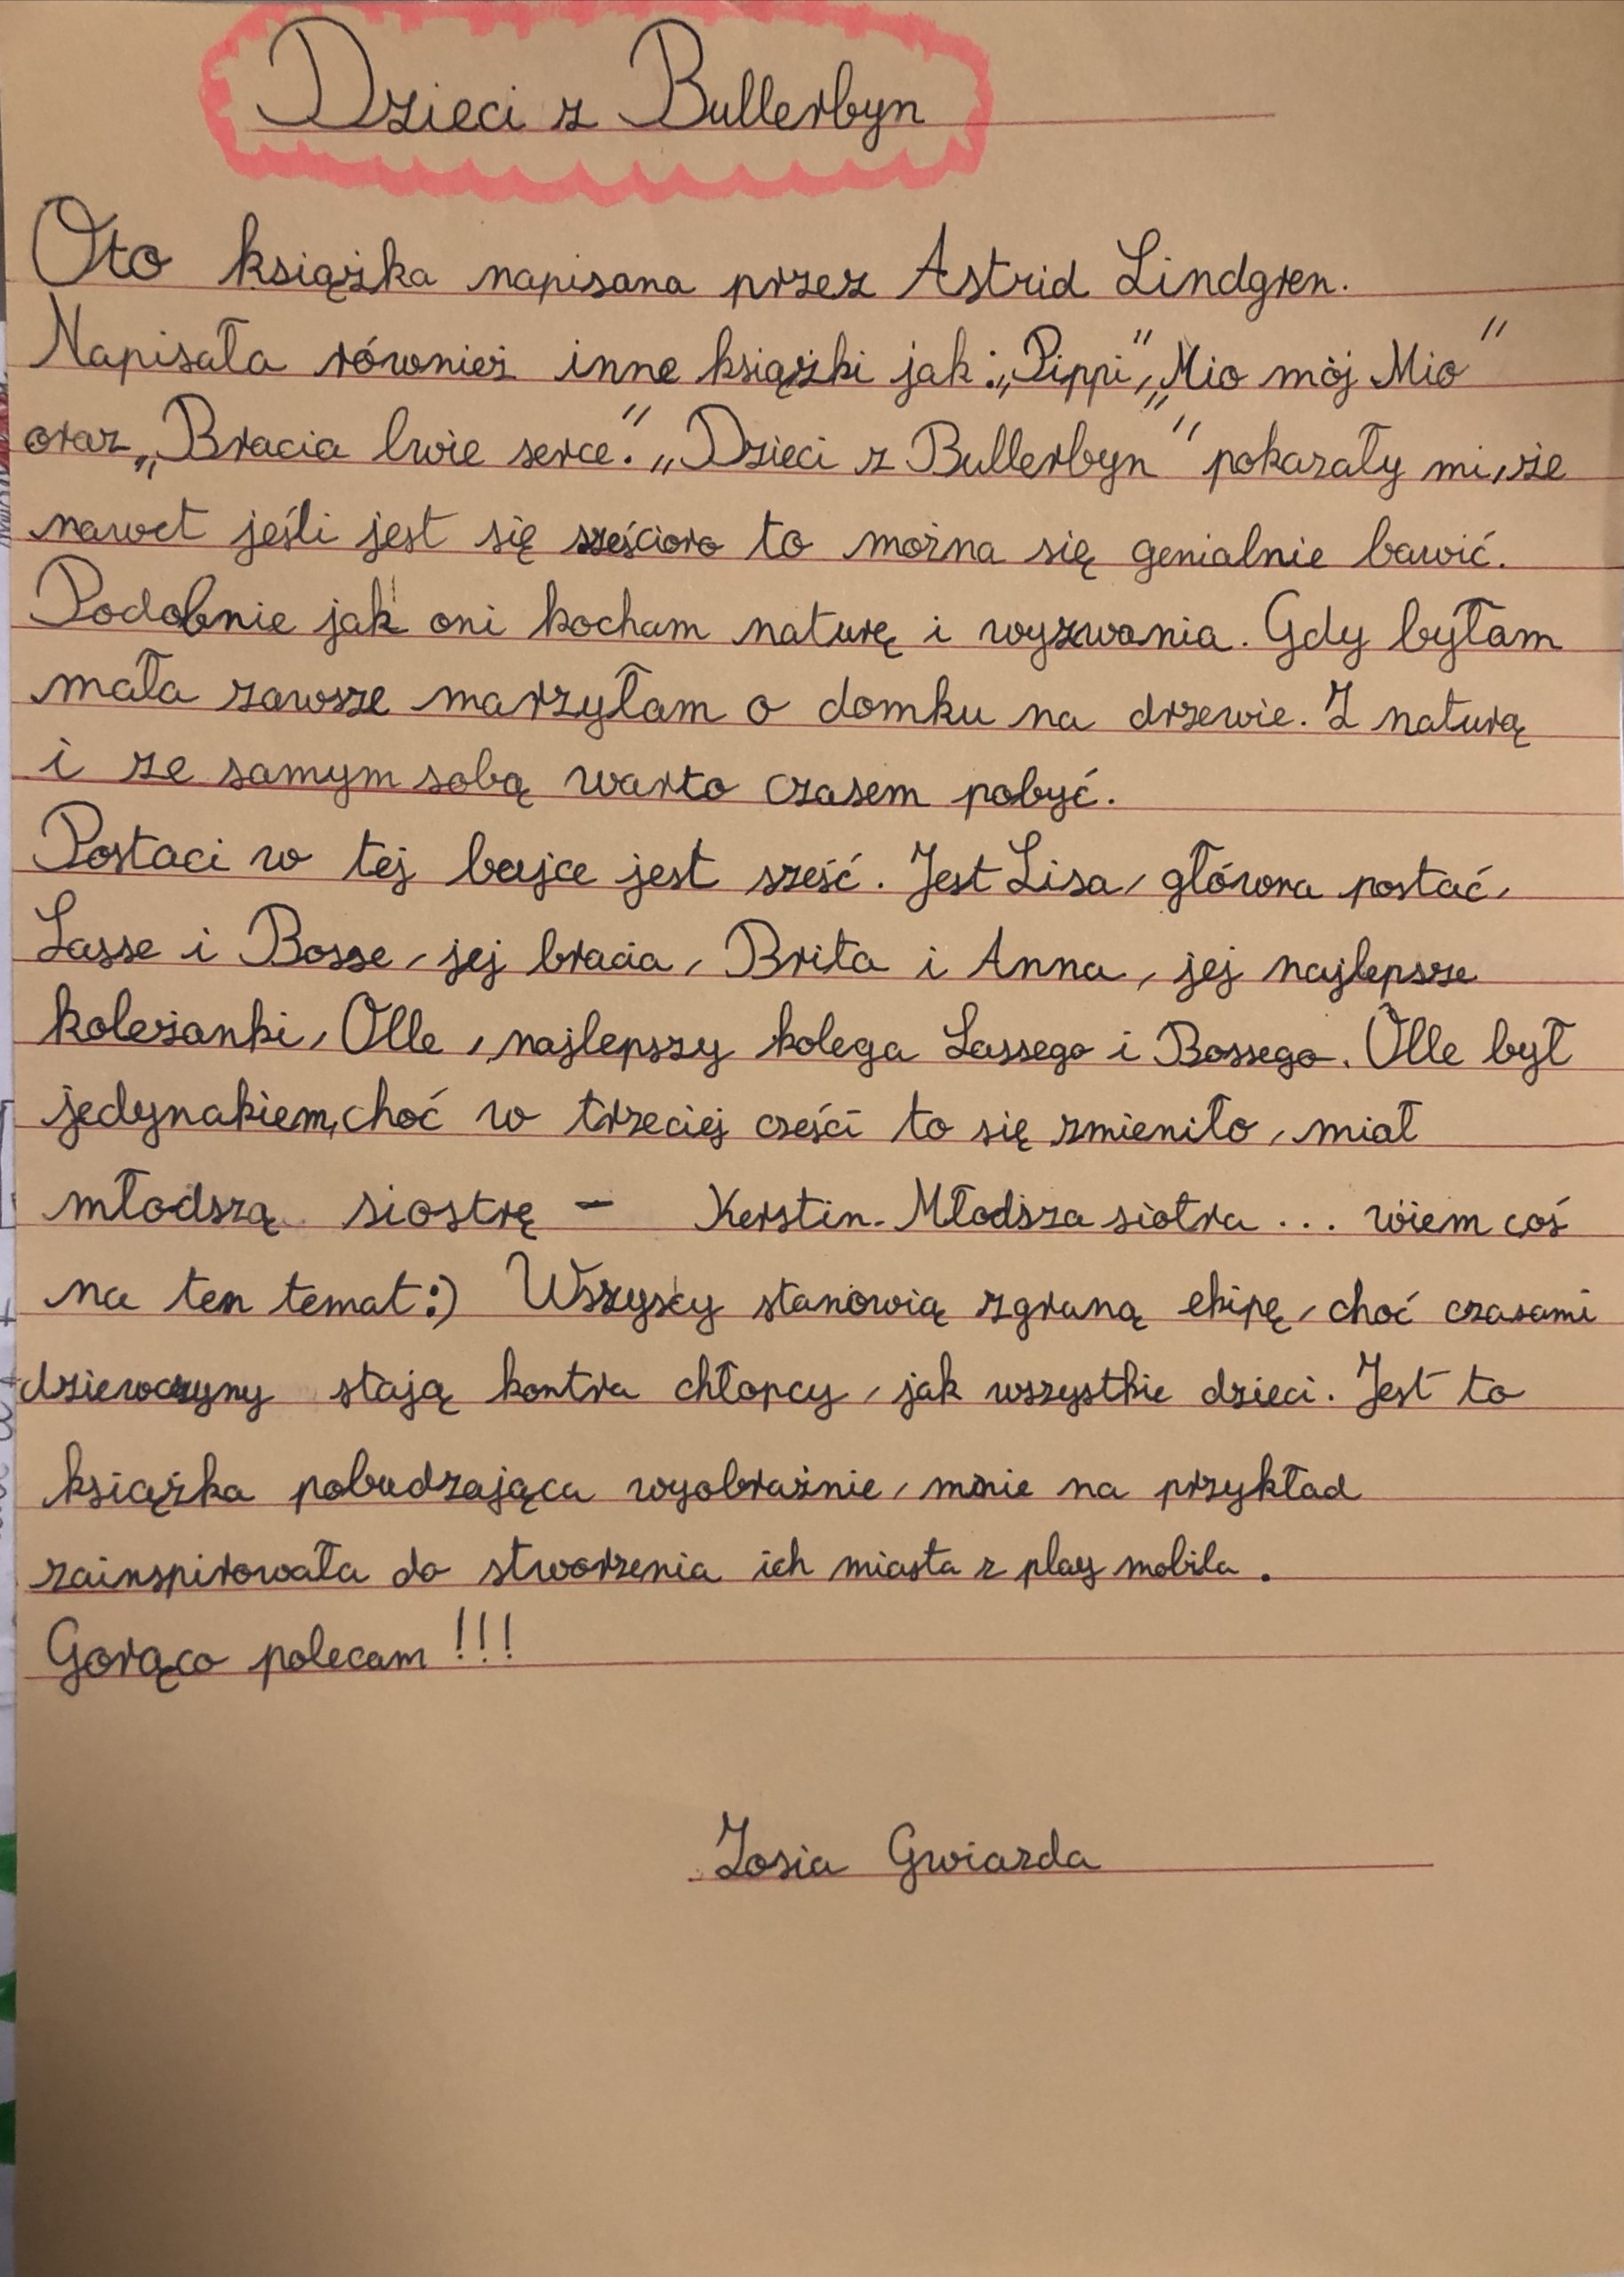 Dzieci z Bullerbyn
Oto książka napisana przez Astrid Lindgren.
Napisała również inne książki jak: „Pippi”, „Mio mój Mio”
oraz „Bracia lwie serce”. „Dzieci z Bullerbyn” pokazały mi, że
nawet jeśli jest się sześcioro to można się genialnie bawić.
Podobnie jak oni kocham naturę i wyzwania. Gdy byłam
mała zawsze marzyłam o domku na drzewie. Z naturą
i ze samym sobą warto czasem pobyć.
Postaci w tej bajce jest sześć. Jest Lisa, główna postać,
Lasse i Bosse, jej bracia, Brita i Anna, jej najlepsze
koleżanki, Olle, najlepszy kolega Lassego i Bossego. Olle był
jedynakiem, choć w trzeciej cześci to się zmieniło, miał
młodszą siostrę - Kerstin. Młodsza siotra ... wiem coś
na ten temat:) Wszyscy stanowią zgraną ekipę, choć czasami
dziewczyny stają kontra chłopcy, jak wszystkie dzieci. Jest to
książka pobudzająca wyobraźnie, mnie na przykład
zainspirowała do stworzenia ich miasta z play mobila.
Gorąco polecam!!!
Zosia Gwiazda